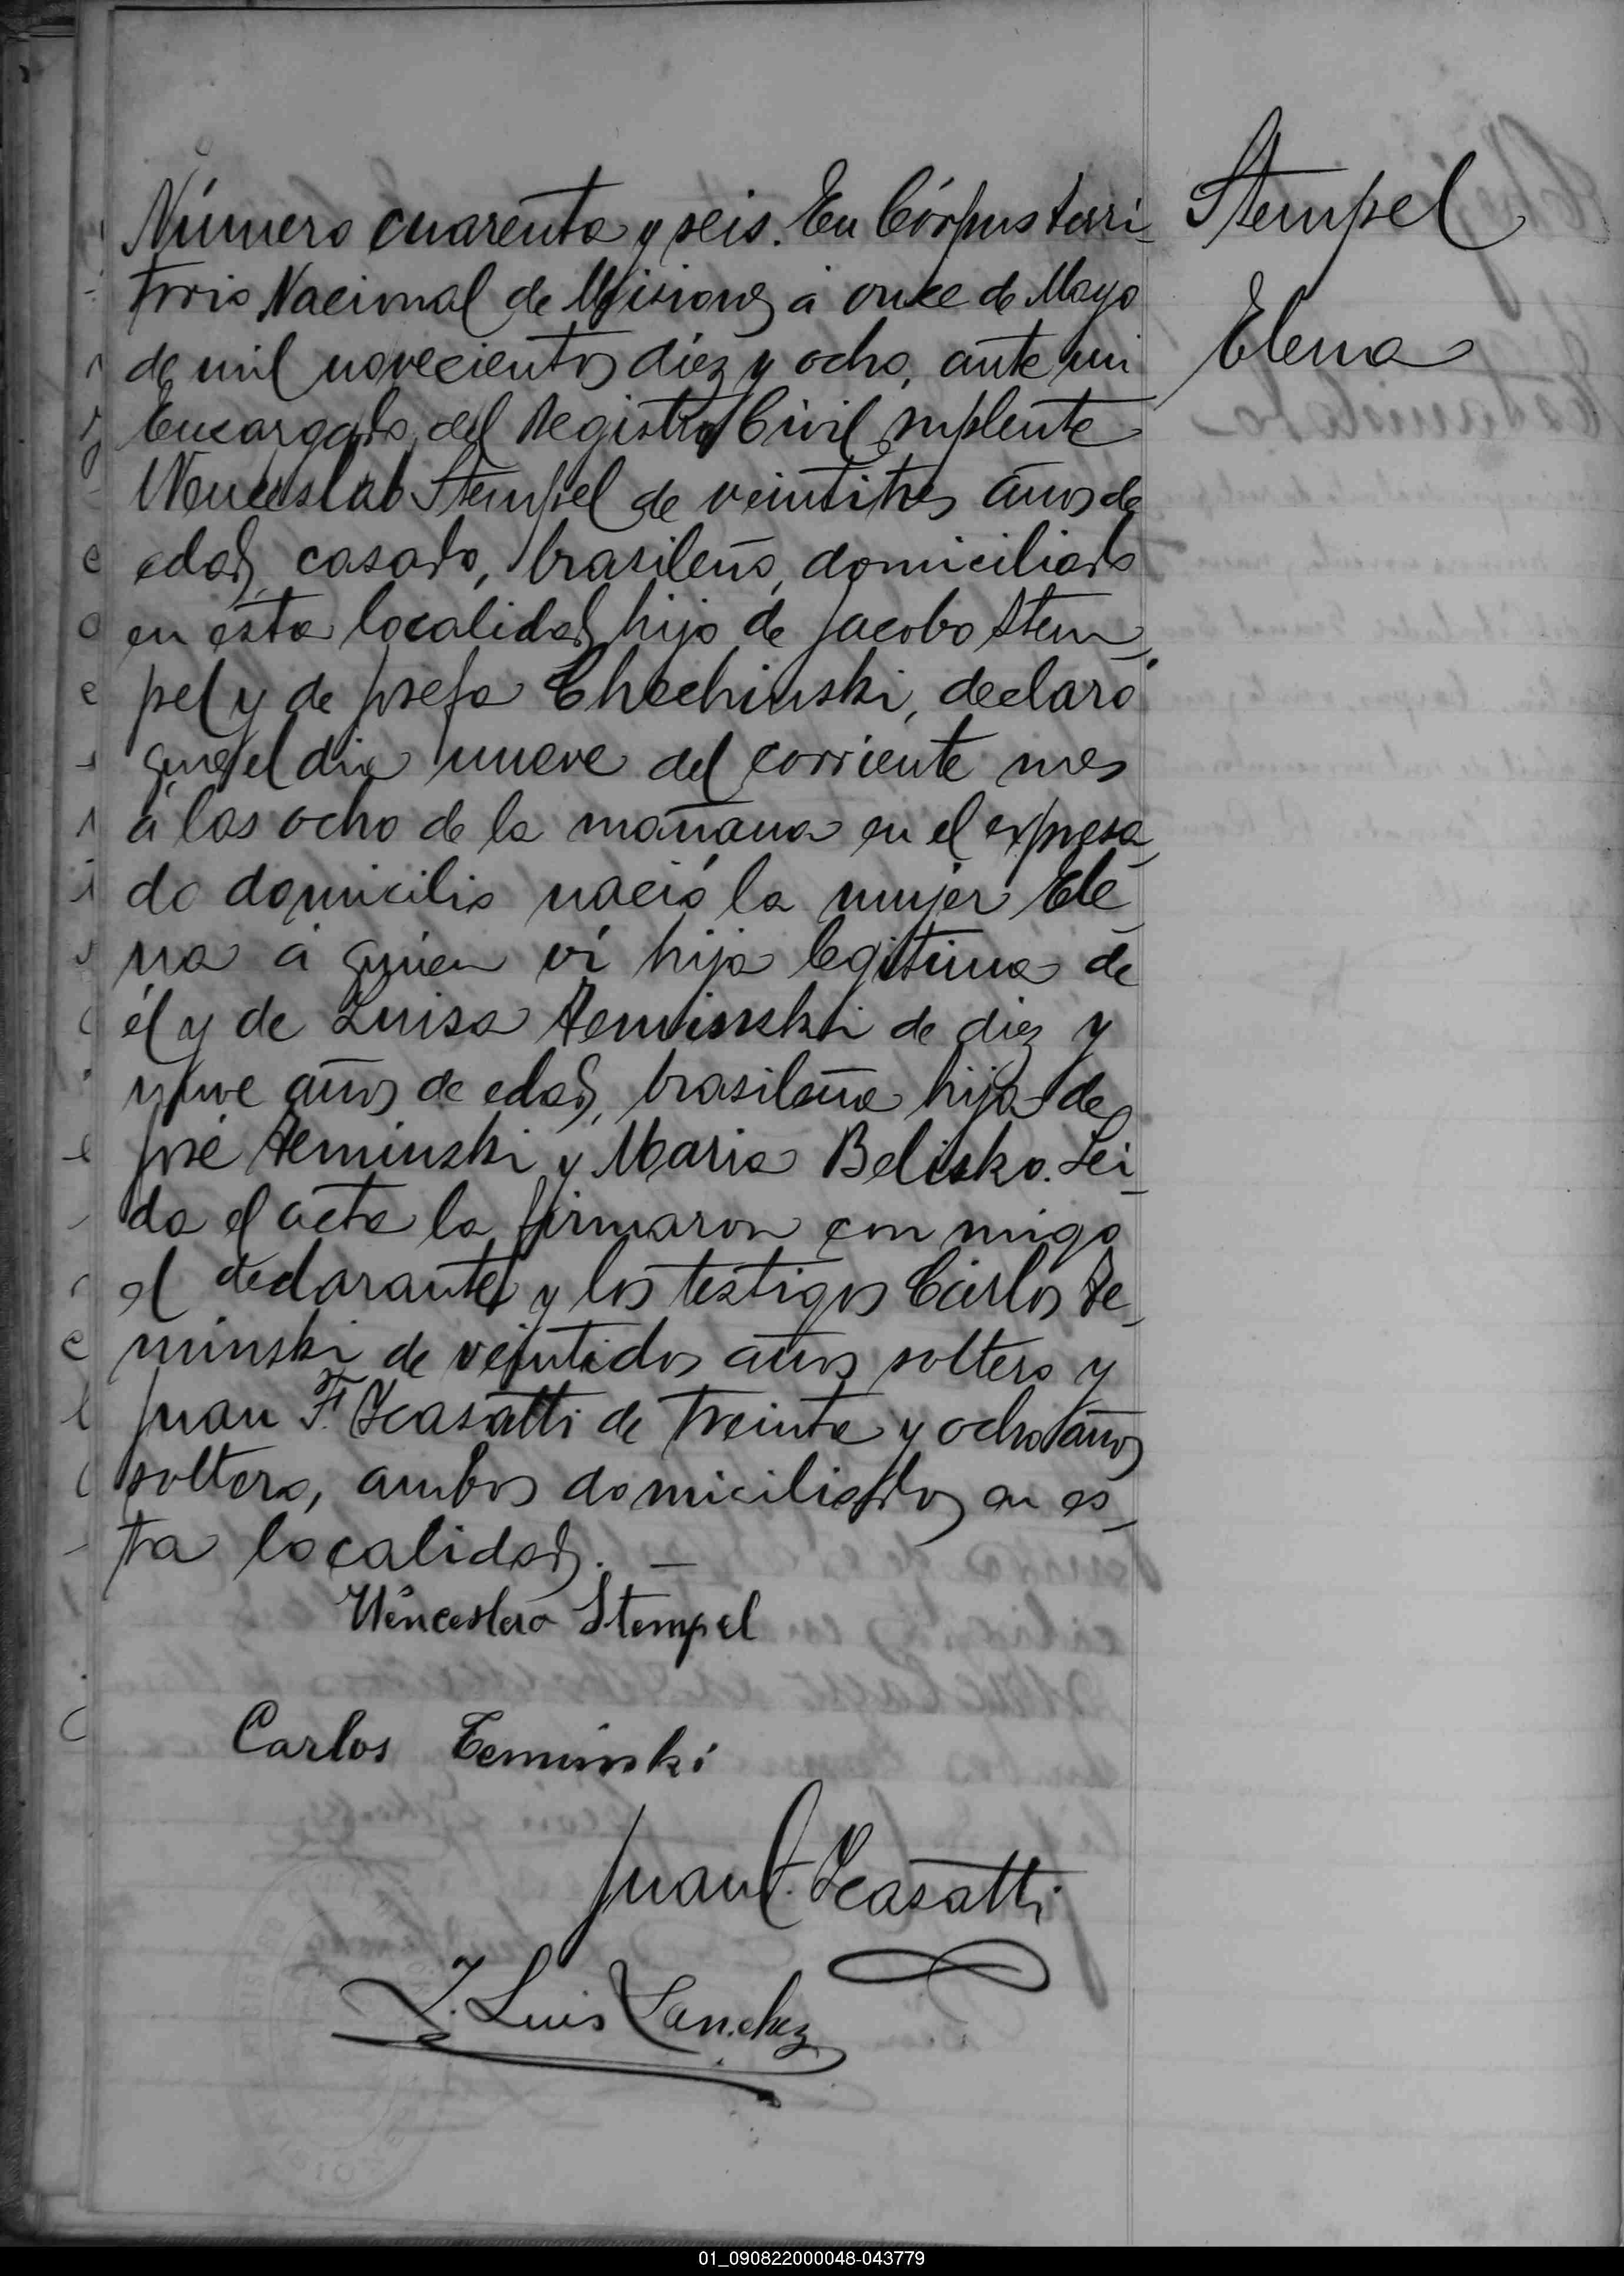 Número cuarenta y seis. En Córpus terri-
torio Nacional de Misiones á once de Mayo
de mil novecientos diez y ocho, ante mi
Encargado del Registro Civil suplente
Wenceslao Stempel de veintitres años de
edad, casado, brasileño, domiciliado
en esta localidad, hijo de Jacobo Stem-
pel y de Josefa Chechinski, declaró
que el dia nueve del corriente mes
á las ocho de la mañana en el expresa-
do domicilio nació la mujer Ele-
na á quien ví hija legitima de
él y de Luisa Teminski de diez y
nueve años de edad, brasileña hija de
José Teminski y Maria Belisko. Lei-
da el acta la firmaron con migo
el declarante y los testigos Cárlos Te-
minski de veintidos años soltero y
Juan F. Icasatti de treinta y ocho años
soltero, ambos domiciliados en es-
ta localidad. —
Stempel
Elena
Wenceslao Stempel
Carlos Teminski
Juan F. Icasatti
J. Luis Sanchez
01_090822000048-043779